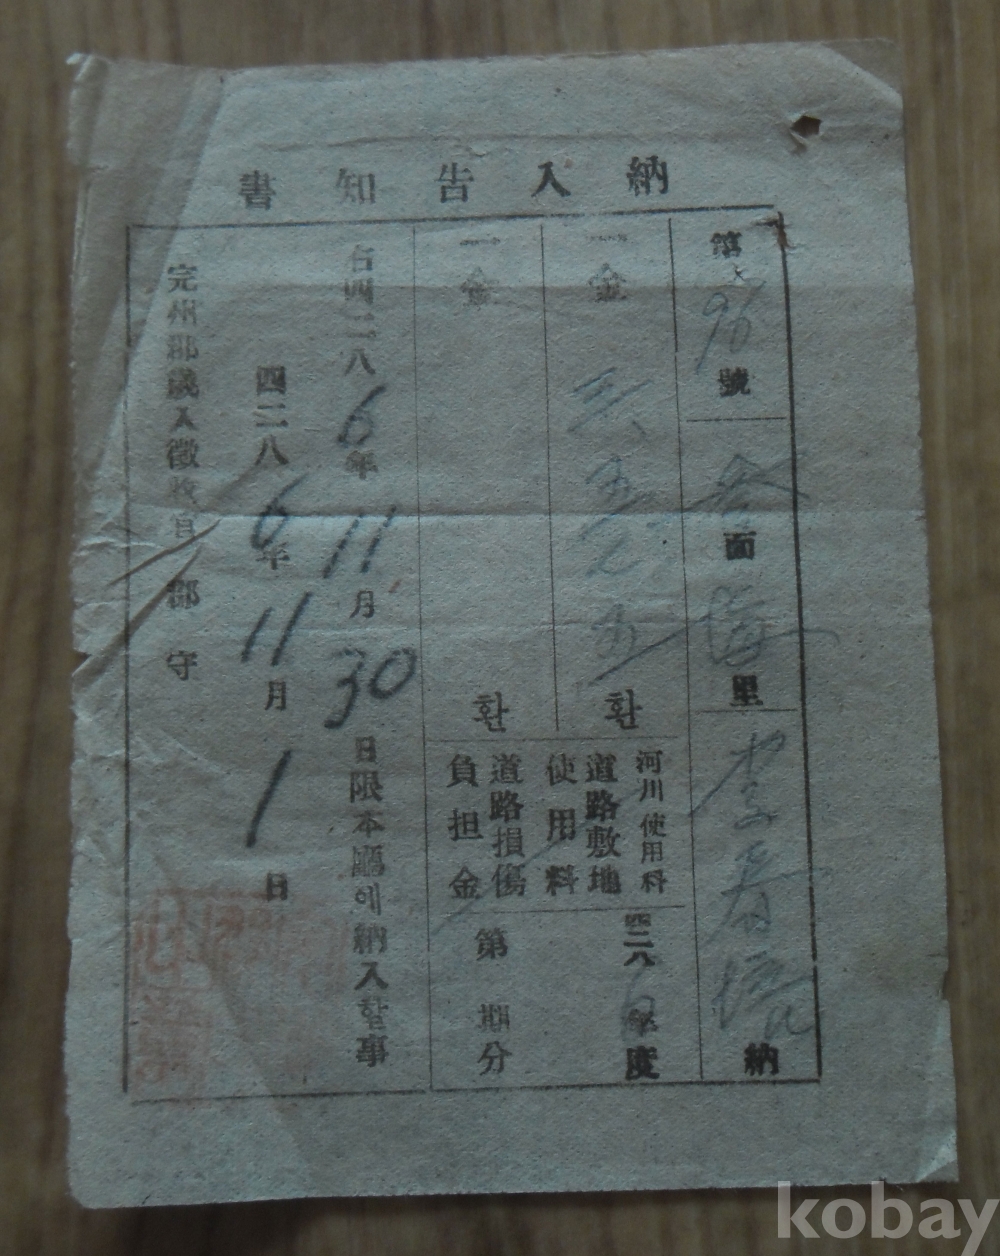 納入告知書
第 96 號
面 里 李 納
一金 환
河川使用料
道路敷地
使用料
四二八6年度
一金 환
道路損傷
負担金
第 期分
右四二八6年11月30日限本廳에納入할事
四二八6年11月1日
完州郡歲入徵收官 郡守
kobay